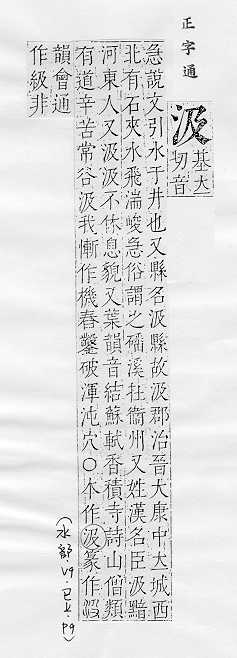 正字通
汲
基大
切音
急說文引水于井也又縣名汲縣故汲郡治晉大康中大城西
北有石夾水飛湍峻急俗謂之磻溪社衛州又姓漢名臣汲黯
河東人又汲汲不休息貌又葉韻音結蘇軾香積寺詩山僧類
有道辛苦常谷汲我慚作機舂鑿破渾沌穴○本作汲篆作
韻會通
作級非